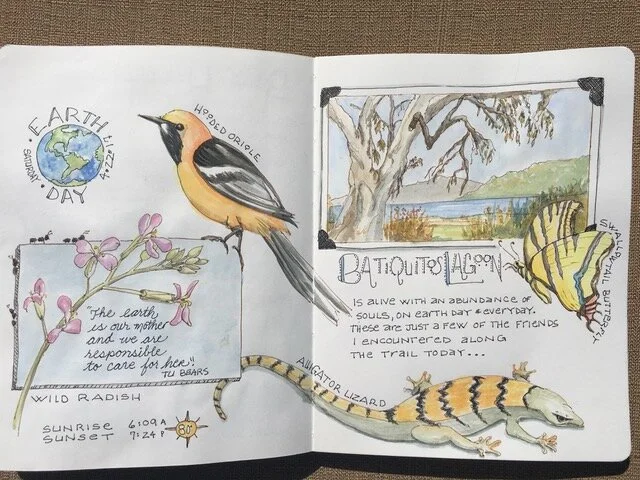 EARTH
DAY
SATURDAY
4.22.17
HOODED ORIOLE
"The earth
is our mother
and we are
responsible
to care for her!"
TU BEARS
WILD RADISH
SUNRISE 6:09A
SUNSET 7:24P
80°
BATIQUITOS LAGOON
IS ALIVE WITH AN ABUNDANCE OF
SOULS, ON EARTH DAY & EVERYDAY.
THESE ARE JUST A FEW OF THE FRIENDS
I ENCOUNTERED ALONG
THE TRAIL TODAY...
SWALLOWTAIL BUTTERFLY
ALLIGATOR LIZARD